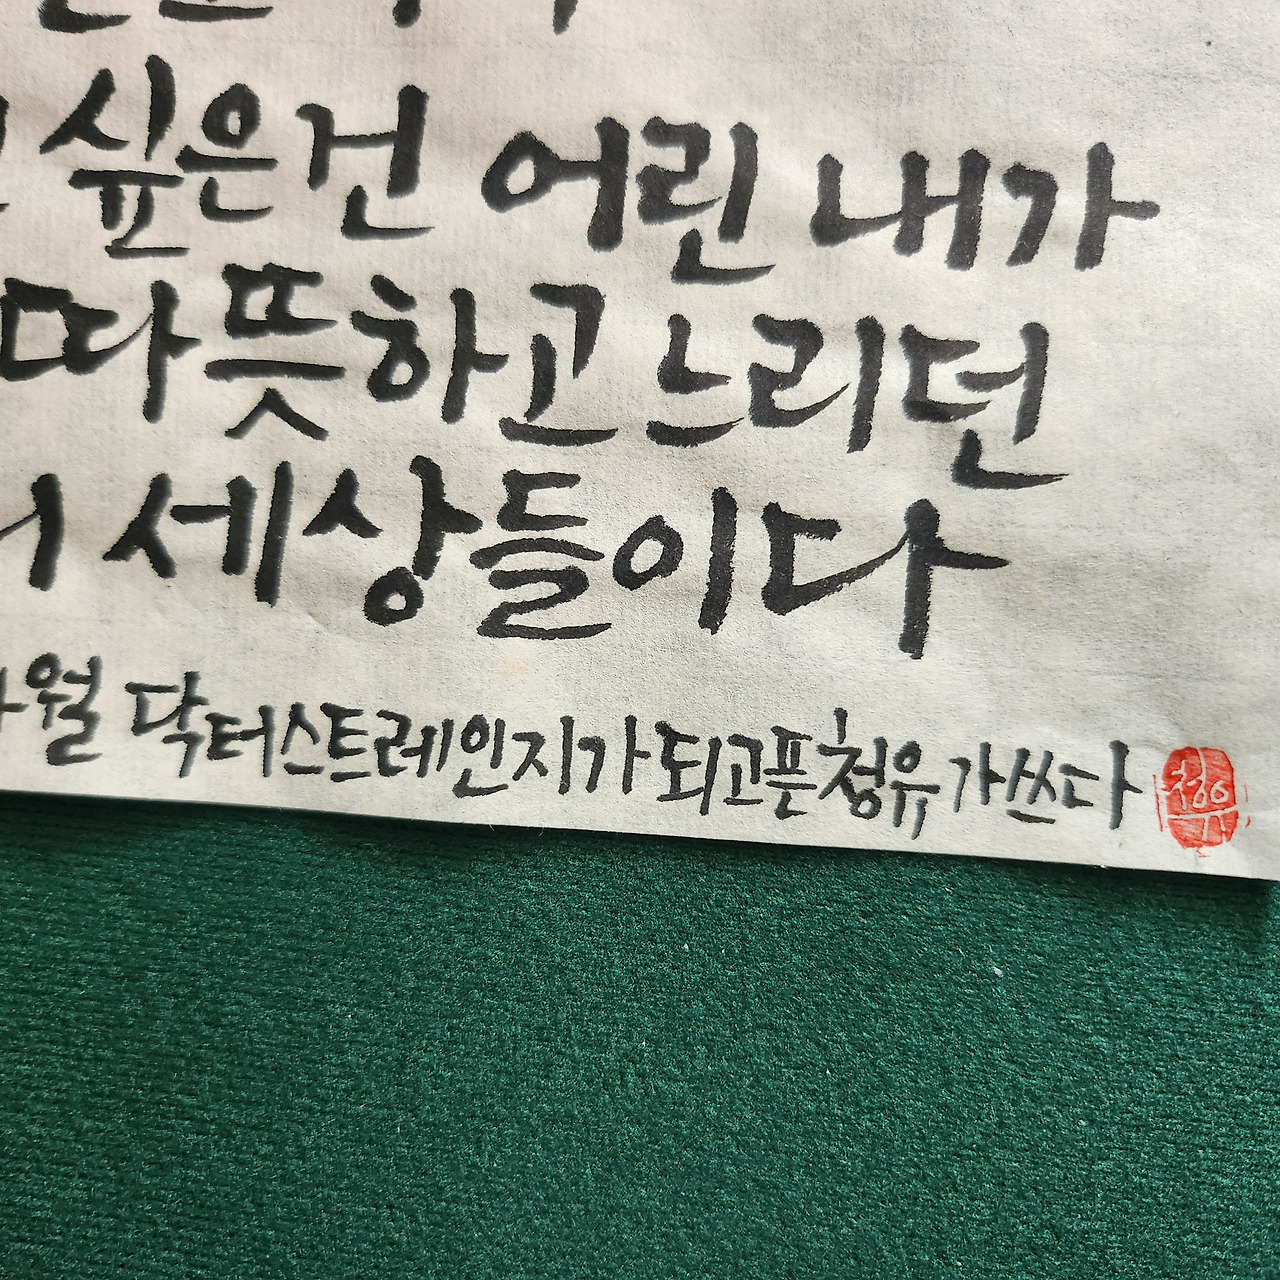 싶은건 어린 내가
따뜻하고 느리던
세상들이다
월 닥터스트레인지가 되고픈 청유가 쓰다
청유